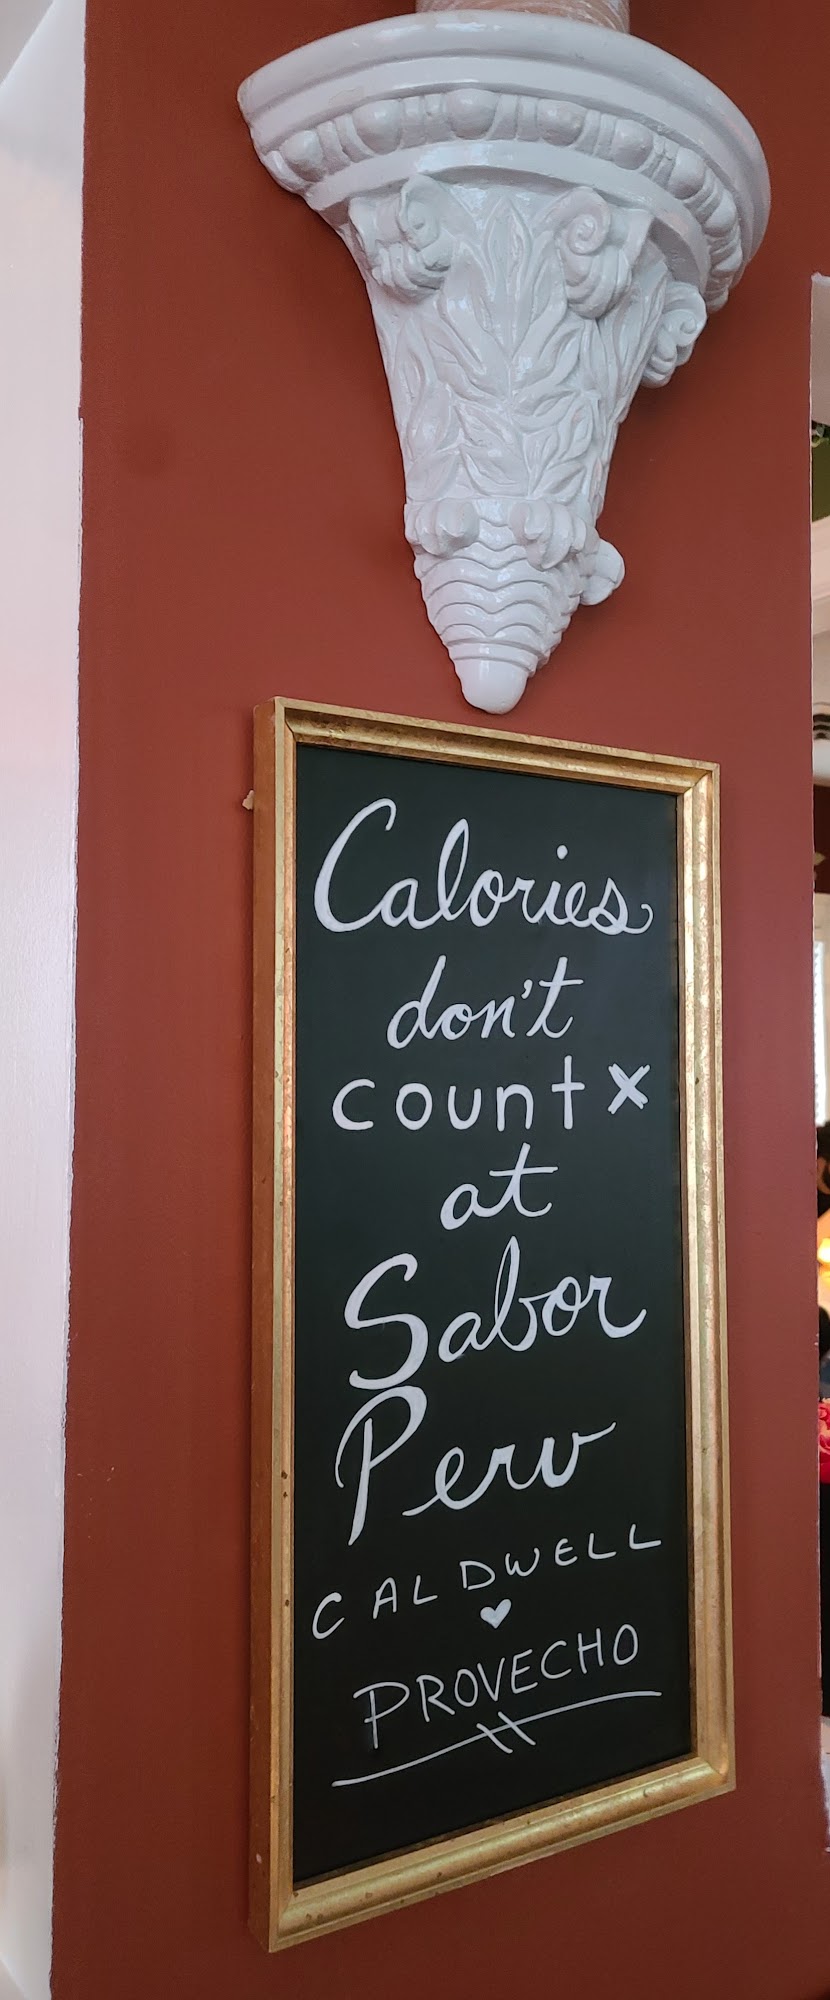 Calories
don't
count x
at
Sabor
Peru
CALDWELL
PROVECHO